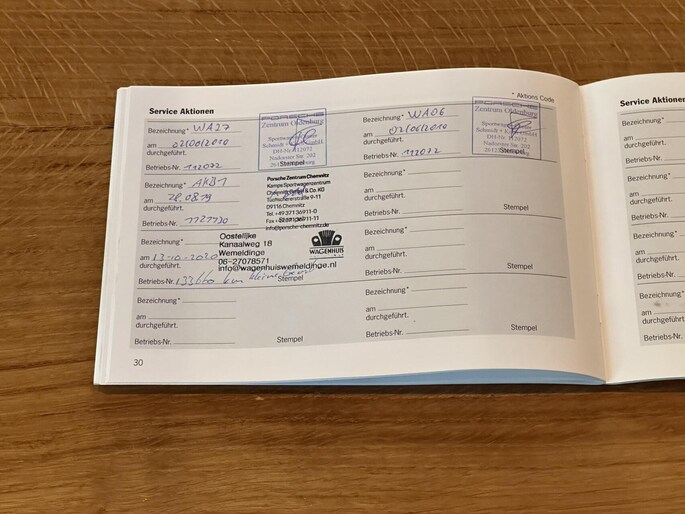 * Aktions Code
Service Aktionen
Bezeichnung* WA27
am 02/06/2010
durchgeführt.
Betriebs-Nr. 112072
Stempel
Zentrum Oldenburg
Sportwagen
Schmidt + GmbH
DH-Nr. 112072
Nadorster Str. 202
Bezeichnung* WA06
am 02/06/2010
durchgeführt.
Betriebs-Nr. 112072
Zentrum Oldenburg
Nadorster Str. 202
Stempel
Bezeichnung* AKB1
am 28.08.19
durchgeführt.
Betriebs-Nr.
Porsche Zentrum Chemnitz
Kamps Sportwagenzentrum
Chemnitz & Co. KG
09116 Chemnitz
Tel. +49 371 36911-0
info@porsche-chemnitz.de
Bezeichnung*
am
durchgeführt.
Betriebs-Nr.
Stempel
Bezeichnung*
am 13-10-2020
durchgeführt.
Betriebs-Nr. 133660 km
Oostelijke
Kanaalweg 18
Wemeldinge
06-27078571
info@wagenhuiswemeldinge.nl
WAGENHUIS
Bezeichnung*
am
durchgeführt.
Betriebs-Nr.
Stempel
Bezeichnung*
am
durchgeführt.
Betriebs-Nr.
Stempel
Bezeichnung*
am
durchgeführt.
Betriebs-Nr.
Stempel
30
Service Aktionen
Bezeichnung*
am
durchgeführt.
Betriebs-Nr.
Bezeichnung*
am
durchgeführt.
Betriebs-Nr.
Bezeichnung*
am
durchgeführt.
Betriebs-Nr.
Bezeichnung*
am
durchgeführt.
Betriebs-Nr.